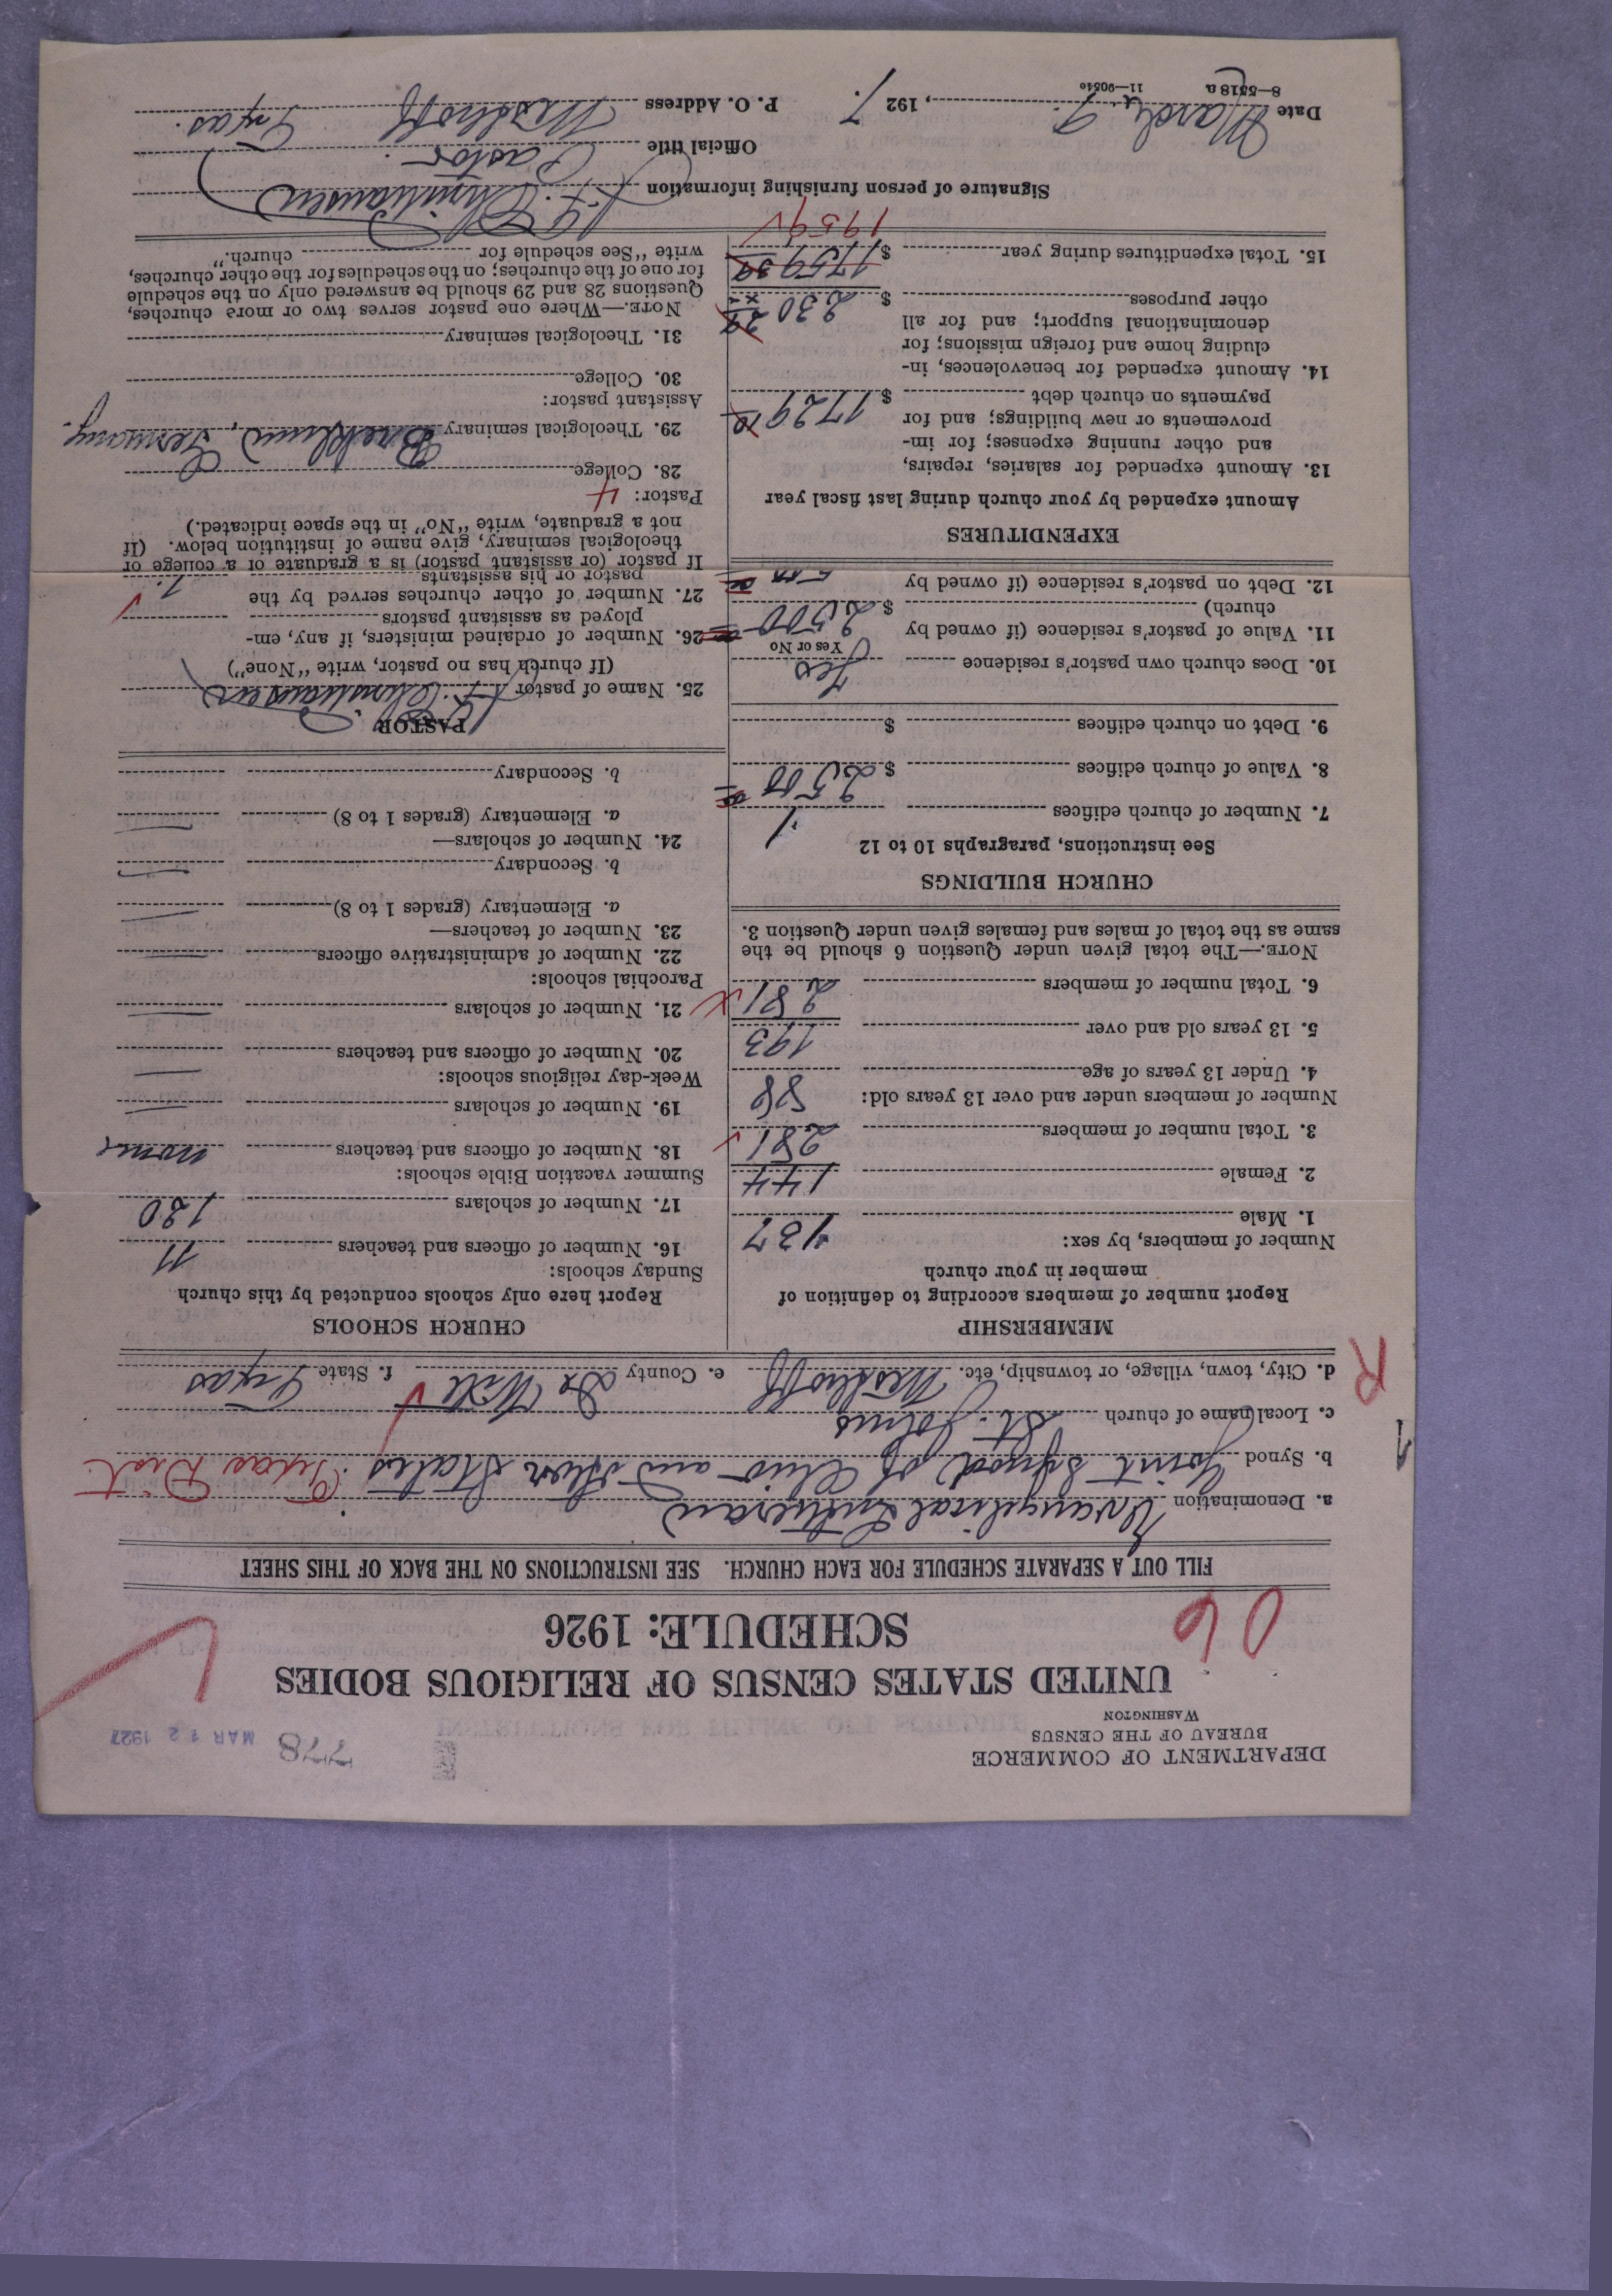 DEPARTMENT OF COMMERCE
BUREAU OF THE CENSUS
WASHINGTON
778
MAR 12 1927
UNITED STATES CENSUS OF RELIGIOUS BODIES
SCHEDULE: 1926
06
FILL OUT A SEPARATE SCHEDULE FOR EACH CHURCH. SEE INSTRUCTIONS ON THE BACK OF THIS SHEET
a. Denomination Evangelical Lutheran
b. Synod Joint Synod of Ohio and other States. Texas Dist.
1
c. Local name of church St. Johns
d. City, town, village, or township, etc. Meyersville e. County De Witt f. State Texas
R
MEMBERSHIP
Report number of members according to definition of
member in your church
Number of members, by sex:
1. Male 137
2. Female 144
3. Total number of members 281
Number of members under and over 13 years old:
4. Under 13 years of age 88
5. 13 years old and over 193
6. Total number of members 281
NOTE.—The total given under Question 6 should be the
same as the total of males and females given under Question 3.
CHURCH BUILDINGS
See instructions, paragraphs 10 to 12
7. Number of church edifices 1
8. Value of church edifices $ 2500
9. Debt on church edifices $
10. Does church own pastor's residence Yes
Yes or No
11. Value of pastor's residence (if owned by
church) $ 2500
12. Debt on pastor's residence (if owned by
500
EXPENDITURES
Amount expended by your church during last fiscal year
13. Amount expended for salaries, repairs,
and other running expenses; for im-
provements or new buildings; and for
payments on church debt $ 1729
14. Amount expended for benevolences, in-
cluding home and foreign missions; for
denominational support; and for all
other purposes $ 230
15. Total expenditures during year $ 1759 39
1959
CHURCH SCHOOLS
Report here only schools conducted by this church
Sunday schools:
16. Number of officers and teachers 11
17. Number of scholars 130
Summer vacation Bible schools:
18. Number of officers and teachers none
19. Number of scholars
Week-day religious schools:
20. Number of officers and teachers
21. Number of scholars
Parochial schools:
22. Number of administrative officers
23. Number of teachers—
a. Elementary (grades 1 to 8)
b. Secondary
24. Number of scholars—
a. Elementary (grades 1 to 8)
b. Secondary
PASTOR
25. Name of pastor
(If church has no pastor, write "None")
26. Number of ordained ministers, if any, em-
ployed as assistant pastors
27. Number of other churches served by the
pastor or his assistants 1.
If pastor (or assistant pastor) is a graduate of a college or
theological seminary, give name of institution below. (If
not a graduate, write "No" in the space indicated.)
Pastor: 4
28. College
29. Theological seminary Breklum, Germany.
Assistant pastor:
30. College
31. Theological seminary
NOTE.—Where one pastor serves two or more churches,
Questions 28 and 29 should be answered only on the schedule
for one of the churches; on the schedules for the other churches,
write "See schedule for church."
Signature of person furnishing information
Official title Pastor.
Date March , 1927. P. O. Address Texas.
8—5318 a